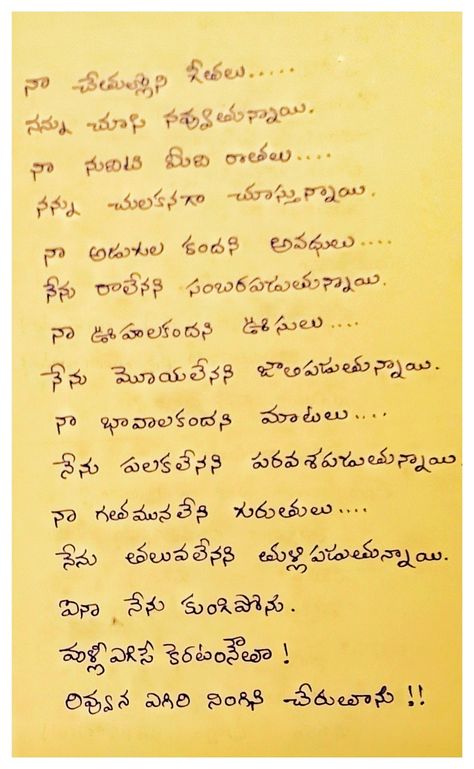 నా చేతుల్లోని గీతలు.....
నన్ను చూసి నవ్వుతున్నాయి.
నా నుదిటి మీది రాతలు....
నన్ను చులకనగా చూస్తున్నాయి.
నా అడుగుల కందని అవధులు....
నేను రాలేనని సంబరపడుతున్నాయి.
నా ఊహలకందని ఊసులు....
నేను మోయలేనని జాతిపడుతున్నాయి.
నా భావాలకందని మాటలు....
నేను పలకలేనని పరవశపడుతున్నాయి
నా గతమునలేని గురుతులు....
నేను తలువలేనని తుళ్లిపడుతున్నాయి.
ఐనా నేను కుంగిపోను.
మళ్లీఎగిసే కెరటంనౌతా!
రివ్వున ఎగిరి నింగిని చేరుతాను!!